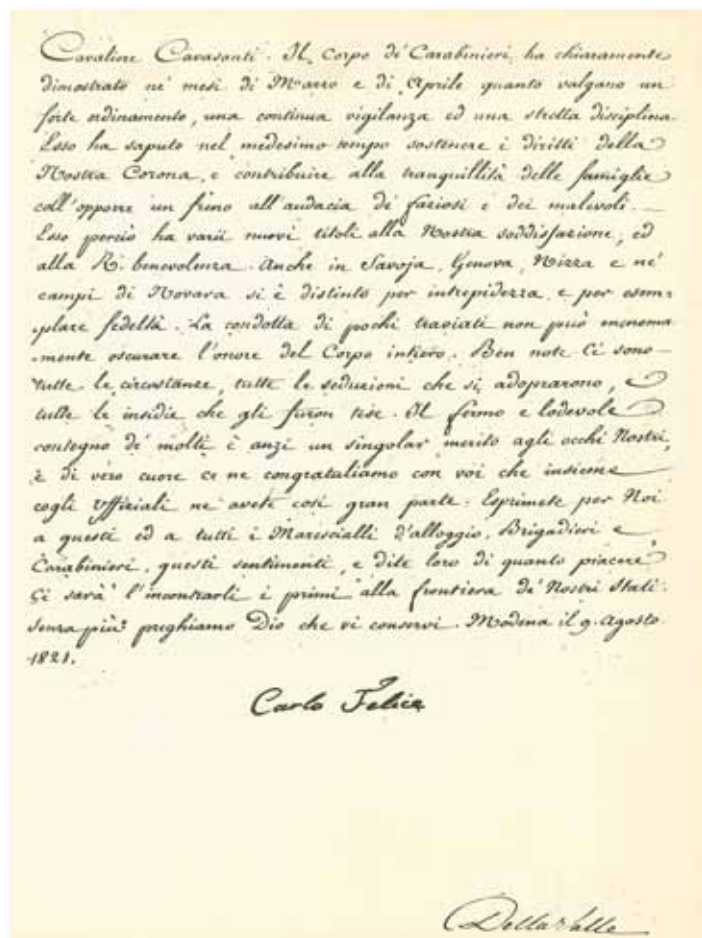 Cavaliere Cavasanti. Il corpo de' Carabinieri ha chiaramente
dimostrato ne' mesi di Marzo e di Aprile quanto valgano un
forte ordinamento, una continua vigilanza ed una stretta disciplina
Esso ha saputo nel medesimo tempo sostenere i diritti della
Nostra Corona, e contribuire alla tranquillità delle famiglie
coll'opporre un freno all'audacia de' faziosi e dei malevoli.
Esso perciò ha varii nuovi titoli alla Nostra soddisfazione, ed
alla R. benevolenza. Anche in Savoja, Genova, Nizza e ne'
campi di Novara si è distinto per intrepidezza, e per esem=
plare fedeltà. La condotta di pochi traviati non può menoma
=mente oscurare l'onore del Corpo intiero. Ben note Ci sono
tutte le circostanze, tutte le seduzioni che si adoprarono, e
tutte le insidie che gli furon tese. Il fermo e lodevole
contegno de' molti è anzi un singolar merito agli occhi Nostri,
e di vero cuore ce ne congratuliamo con voi che insieme
cogli Uffiziali ne avete così gran parte. Esprimete per Noi
a questi ed a tutti i Marescialli d'alloggio, Brigadieri e
Carabinieri, questi sentimenti, e dite loro di quanto piacere
Ci sarà l'incontrarli i primi alla frontiera de' Nostri Stati.
Senza più preghiamo Dio che vi conservi. Modena il 9. Agosto
1821.
Carlo Felice
Della Valle